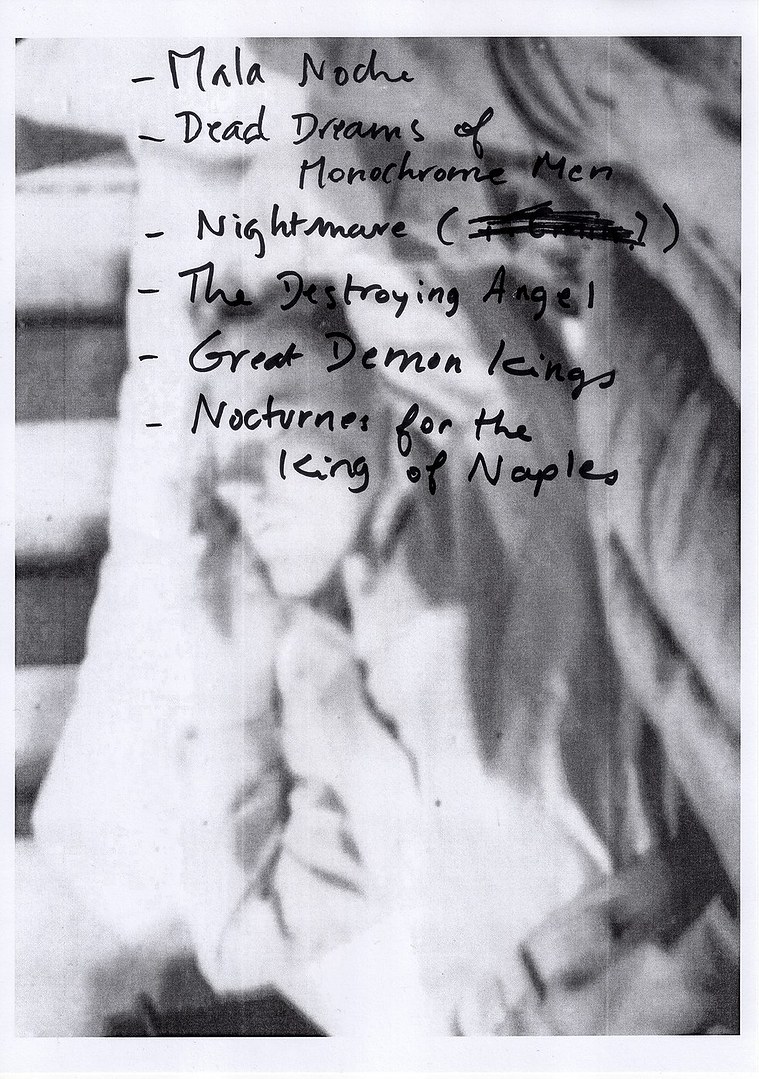 – Mala Noche
– Dead Dreams of
Monochrome Men
– Nightmare ( )
– The Destroying Angel
– Great Demon Kings
– Nocturnes for the
King of Naples